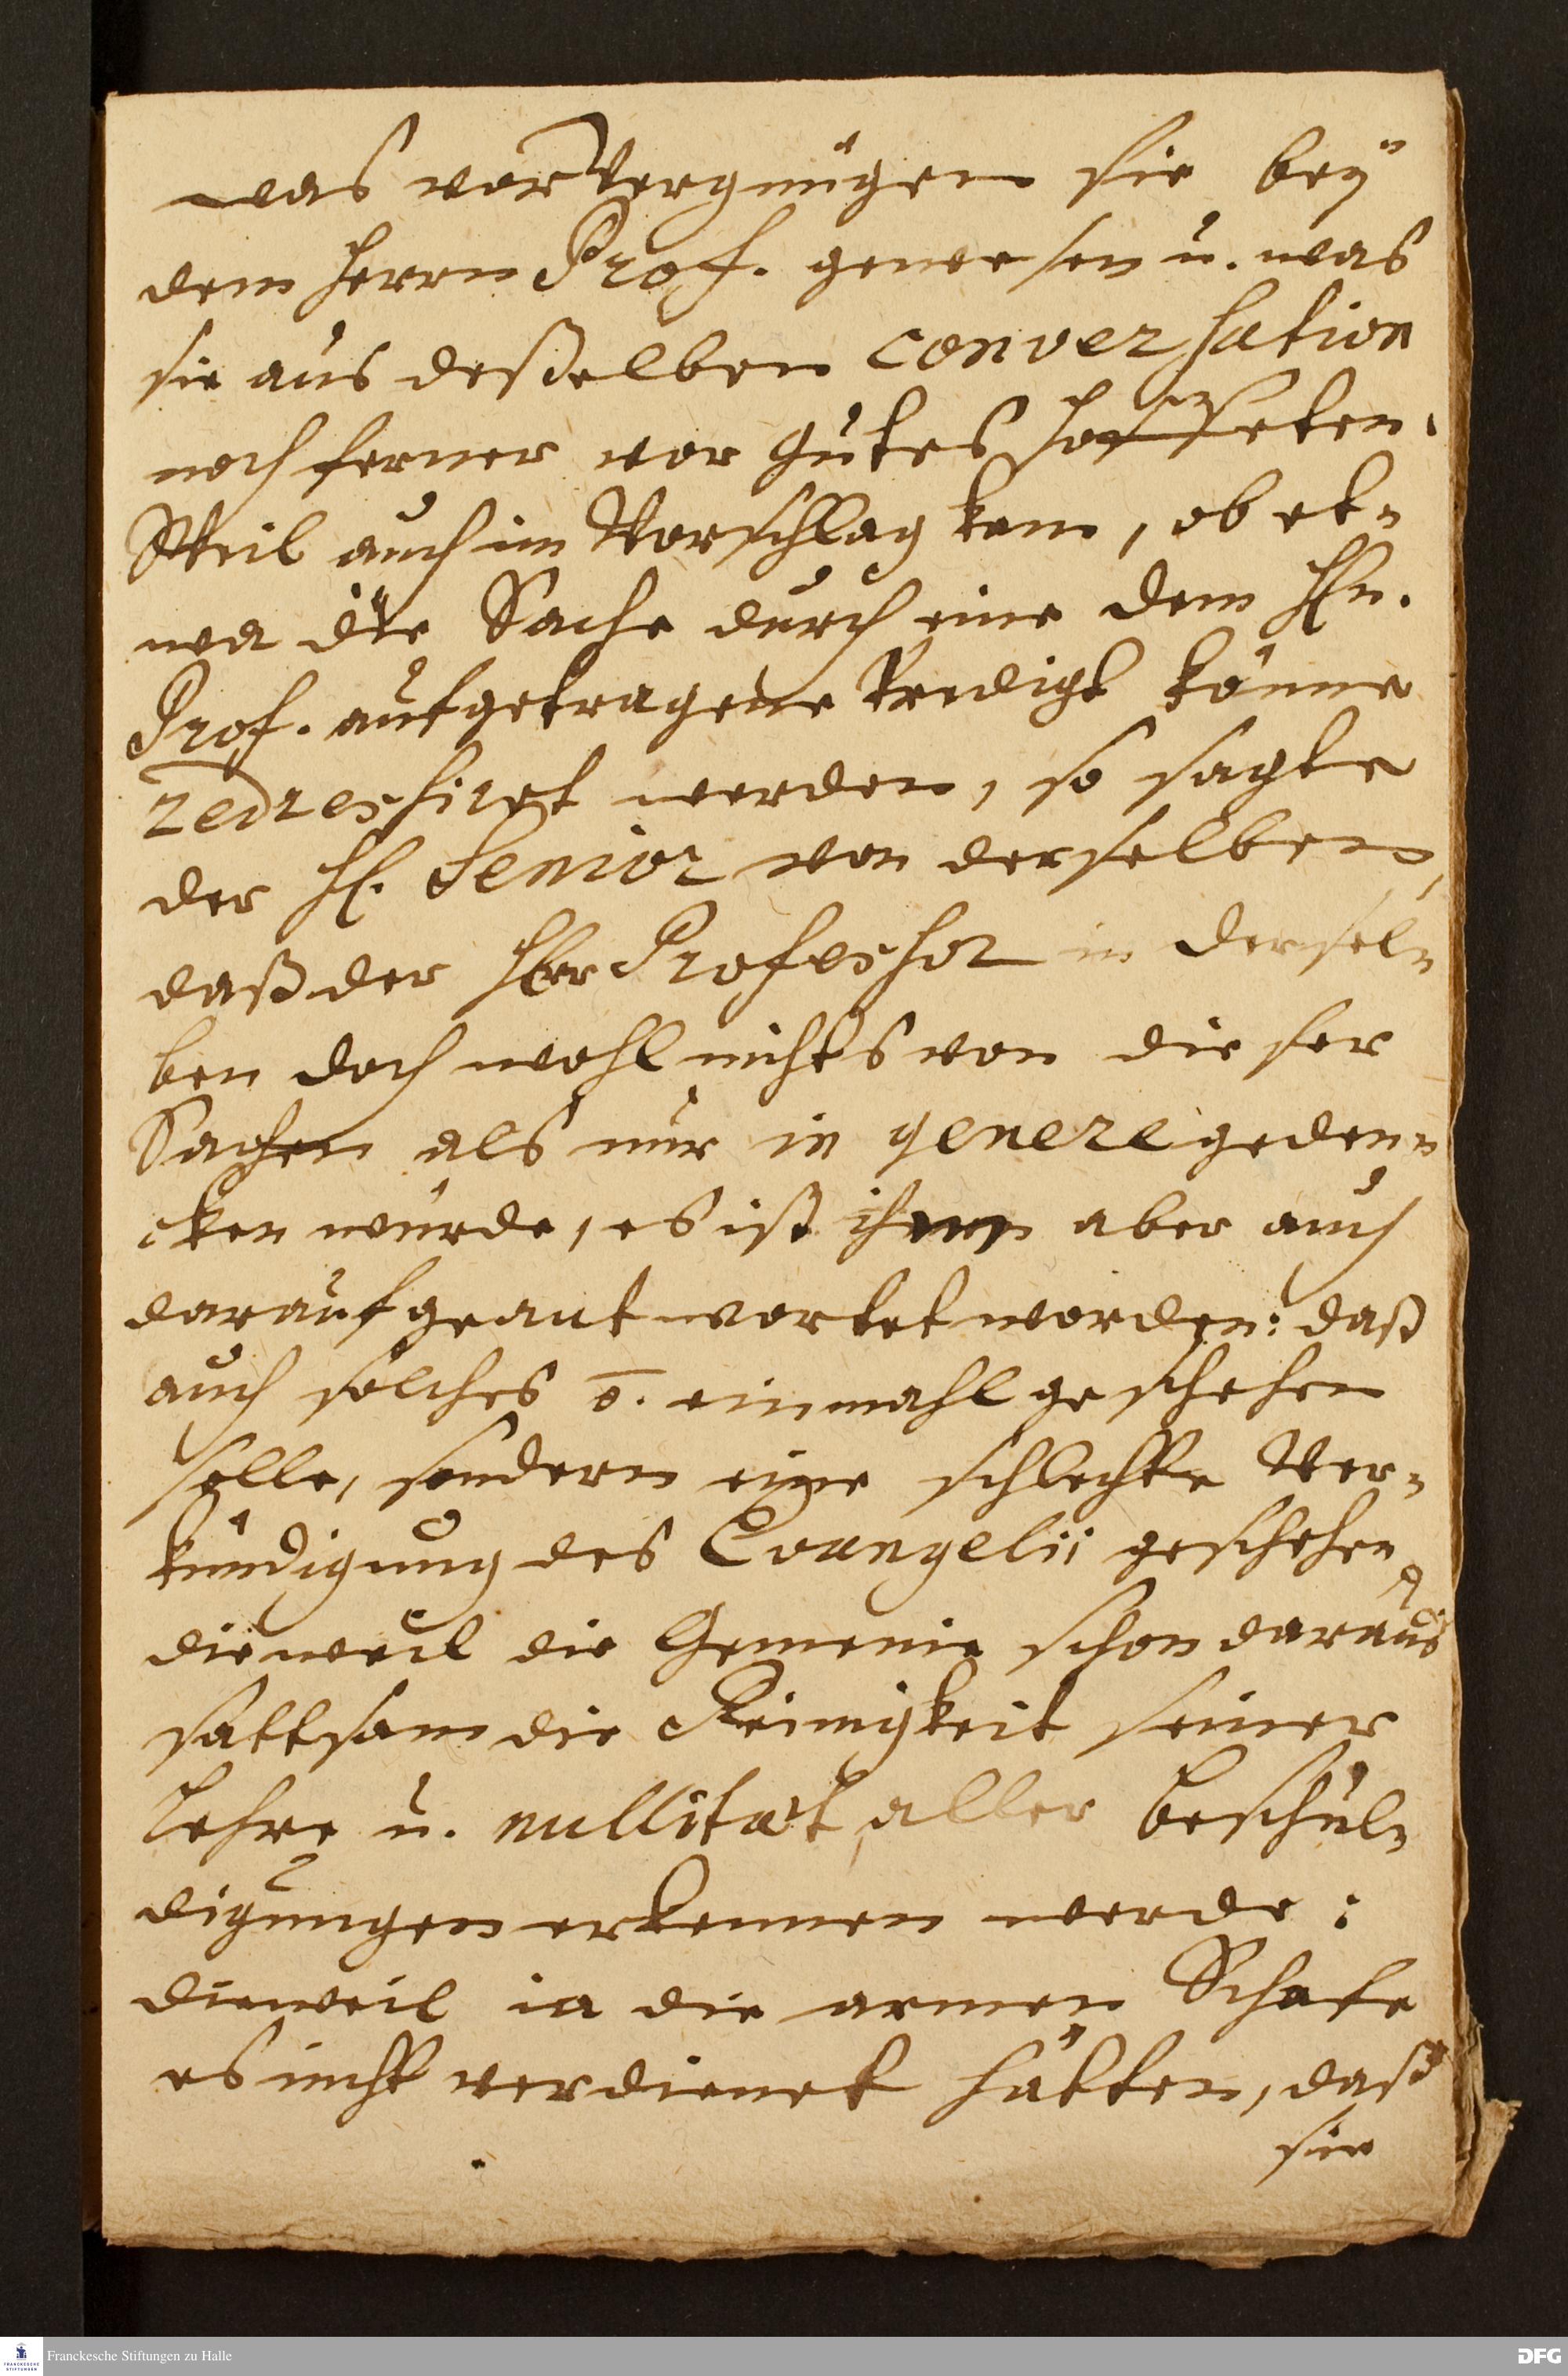 was vor Vergnügen sie bey
dem Herrn Prof. gewesen u. was
sie aus deßelben conversation
noch ferner vor gutes hoffeten.
Weil auch im Vorschlag kam, ob et-
wa die Sache durch eine dem Hn.
Prof. aufgetragene Predigt könne
redressiret werden, so sagte
der H. Senior von derselben,
daß der Herr Professor in dersel-
ben doch wohl nichts von dieser
Sachen als nur in genere geden-
cken würde, es ist ihm aber auch
darauf geantwortet worden: daß
auch solches o. einmahl geschehen
solle, sondern eine schlechte Ver-
kündigung des Evangelii geschehen
dieweil die Gemeine schon daraus
sattsam die Reinigkeit seiner
Lehre u. nullität aller Beschul-
digungen erkennen werde:
dieweil ia die armen Schafe
es nicht verdienet hätten, daß
sie
Franckesche Stiftungen zu Halle
DFG